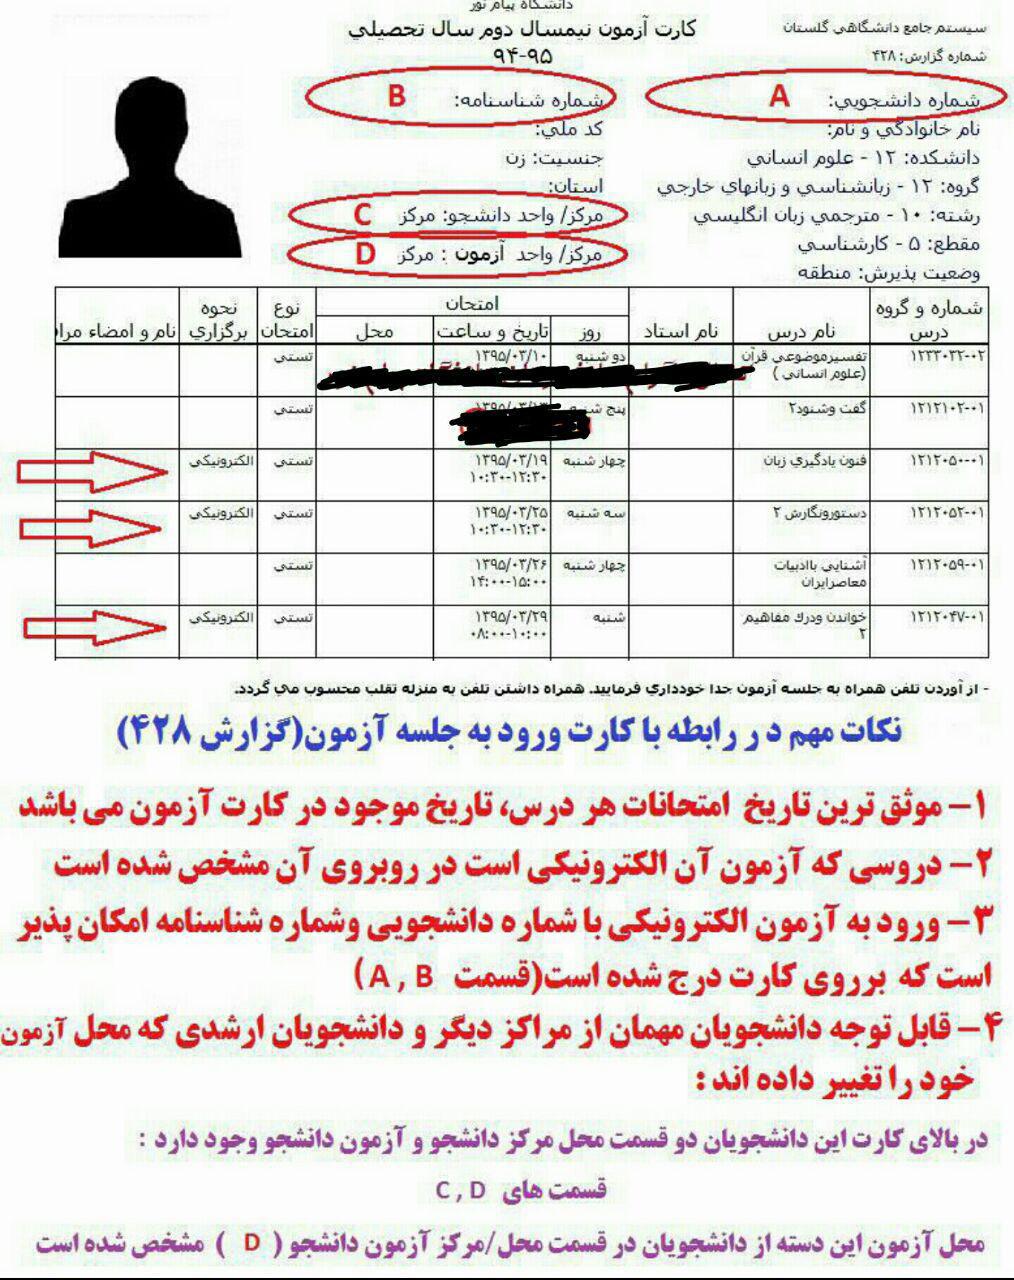 دانشگاه پیام نور
کارت آزمون نیمسال دوم سال تحصیلي
۹۴-۹۵
سیستم جامع دانشگاهی گلستان
شماره گزارش: ۴۲۸
شماره دانشجویي: A
شماره شناسنامه: B
نام خانوادگي و نام:
کد ملي:
دانشکده: ۱۲ - علوم انساني
جنسیت: زن
گروه: ۱۲ - زبانشناسي و زبانهاي خارجي
استان:
رشته: ۱۰ - مترجمي زبان انگلیسي
مرکز/ واحد دانشجو: مرکز C
مقطع: ۵ - کارشناسي
مرکز/ واحد آزمون : مرکز D
وضعیت پذیرش: منطقه
شماره و گروه درس نام درس نام استاد امتحان روز تاریخ و ساعت محل نوع امتحان نحوه برگزاري نام و امضاء مرا
۱۲۳۳۰۳۲-۰۲ تفسیرموضوعي قرآن (علوم انساني ) دو شنبه ۱۳۹۵/۰۳/۱۰ تستي
۱۲۱۲۱۰۲-۰۱ گفت وشنود۲ پنج شنبه تستي
۱۲۱۲۰۵۰-۰۱ فنون یادگیري زبان چهار شنبه ۱۳۹۵/۰۳/۱۹ ۱۰:۳۰-۱۲:۳۰ تستي الکترونیکي
۱۲۱۲۰۵۲-۰۱ دستورونگارش ۲ سه شنبه ۱۳۹۵/۰۳/۲۵ ۱۰:۳۰-۱۲:۳۰ تستي الکترونیکي
۱۲۱۲۰۵۹-۰۱ آشنایي باادبیات معاصرایران چهار شنبه ۱۳۹۵/۰۳/۲۶ ۱۴:۰۰-۱۵:۰۰ تستي
۱۲۱۲۰۴۷-۰۱ خواندن ودرك مفاهیم ۲ شنبه ۱۳۹۵/۰۳/۲۹ ۰۸:۰۰-۱۰:۰۰ تستي الکترونیکي
- از آوردن تلفن همراه به جلسه آزمون جدا خودداري فرمایید. همراه داشتن تلفن به منزله تقلب محسوب مي گردد.
نکات مهم در رابطه با کارت ورود به جلسه آزمون(گزارش ۴۲۸)
۱- موثق ترین تاریخ امتحانات هر درس، تاریخ موجود در کارت آزمون می باشد
۲- دروسی که آزمون آن الکترونیکی است در روبروی آن مشخص شده است
۳- ورود به آزمون الکترونیکی با شماره دانشجویی وشماره شناسنامه امکان پذیر
است که برروی کارت درج شده است(قسمت A , B)
۴- قابل توجه دانشجویان مهمان از مراکز دیگر و دانشجویان ارشدی که محل آزمون
خود را تغییر داده اند :
در بالای کارت این دانشجویان دو قسمت محل مرکز دانشجو و آزمون دانشجو وجود دارد :
قسمت های C , D
محل آزمون این دسته از دانشجویان در قسمت محل/مرکز آزمون دانشجو ( D ) مشخص شده است